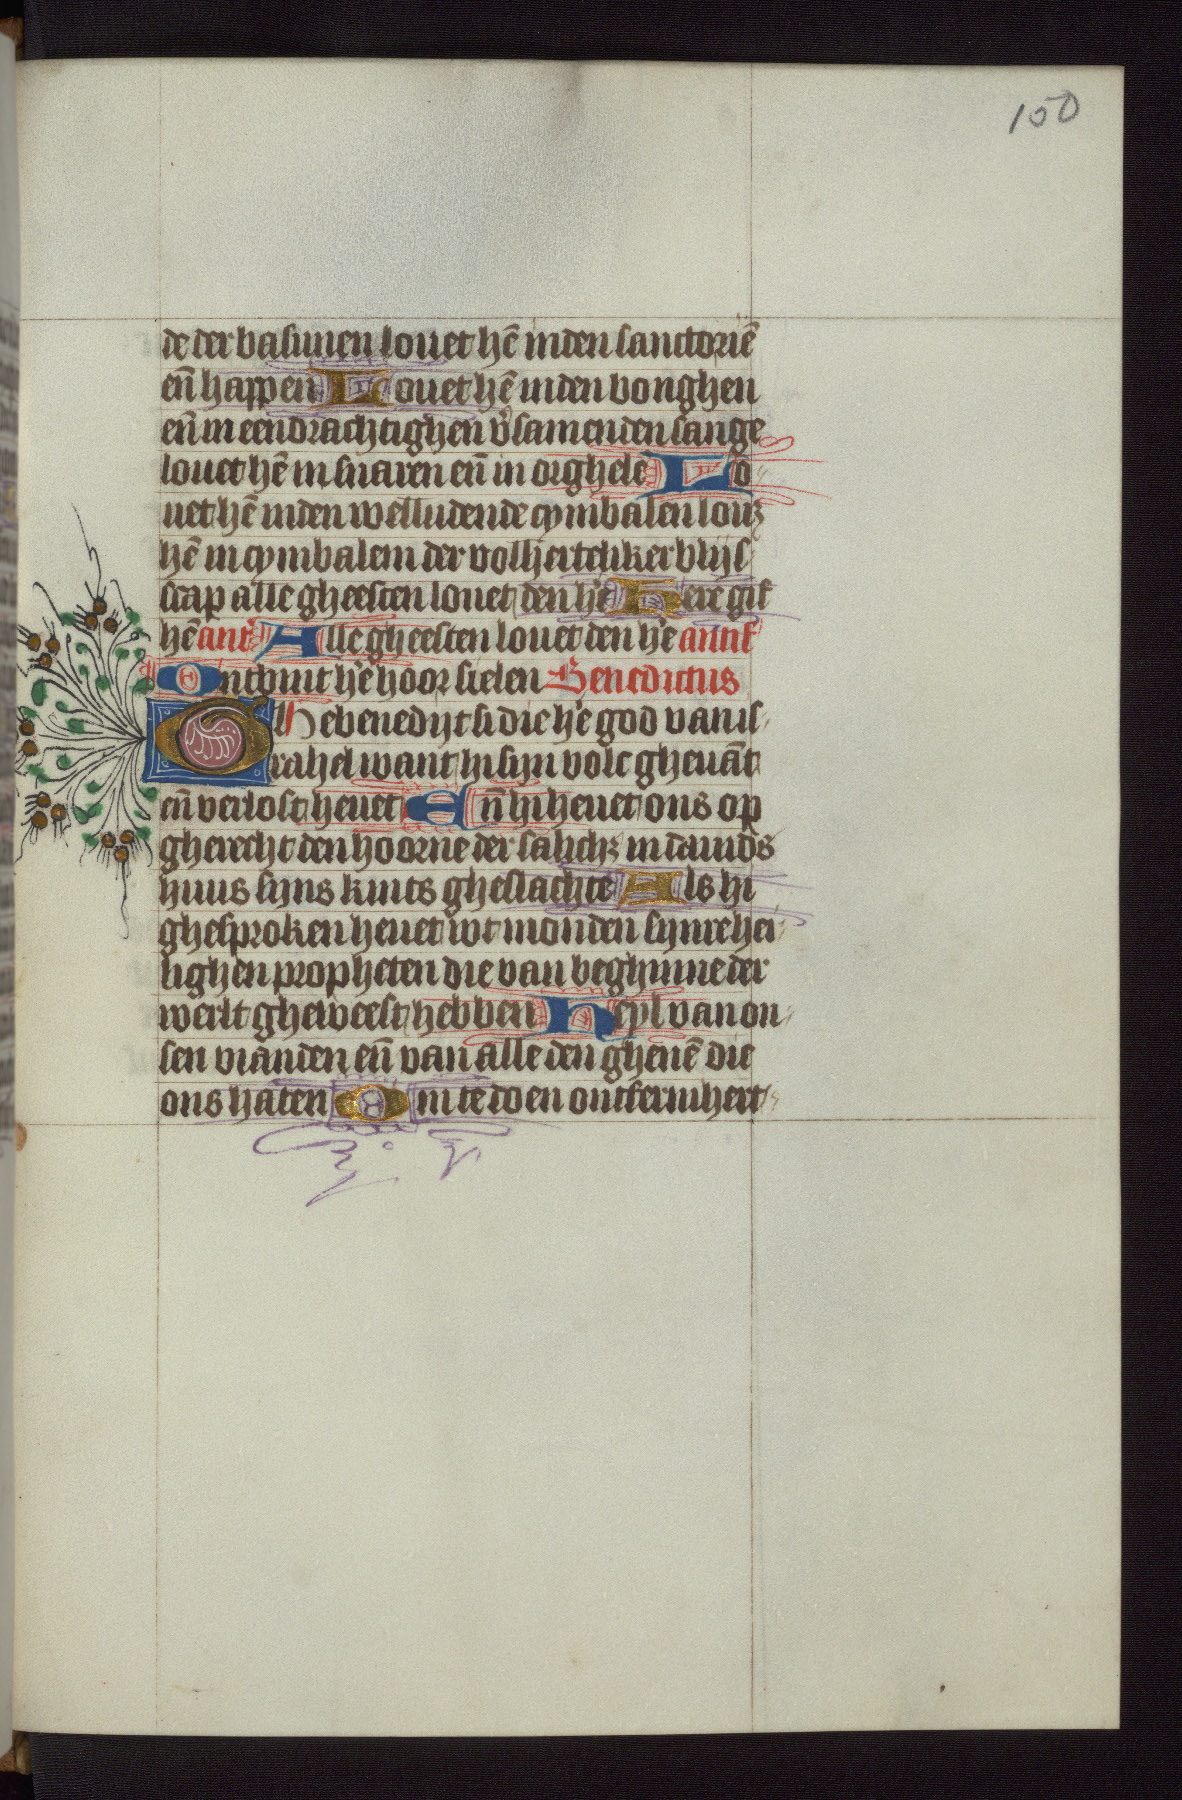 150
de der basunen louet hē inden sanctoriē
eñ harpen Louet hē inden bonghen
eñ in eendrachtighen v̄samenden sange
louet hē in snaren eñ in orghelē Lo
uet hē inden welludende cymbalen louꝫ
hē in cymbalem der volhertelikerblijs
scap alle gheesten louet den h̄e Here gif
hē ant̄ Alle gheesten louet den h̄e antif
Ontbint h̄e hoor sielen Benedictus
Ghebenedijt si die h̄e god van is
rahel want hi sijn volc gheuāt
eñ verlost heuet Eñ hi heuet ons op
gherecht den hoorne der salichꝫ in dauids
huus sijns kints gheslachte Als hi
ghesproken heuet wt monden sijnre hei
lighen propheten die van beghinne der
werlt gheweest hebben Heyl van on
sen vianden eñ van alle den ghenē die
ons haten Om te doen ontfermhert